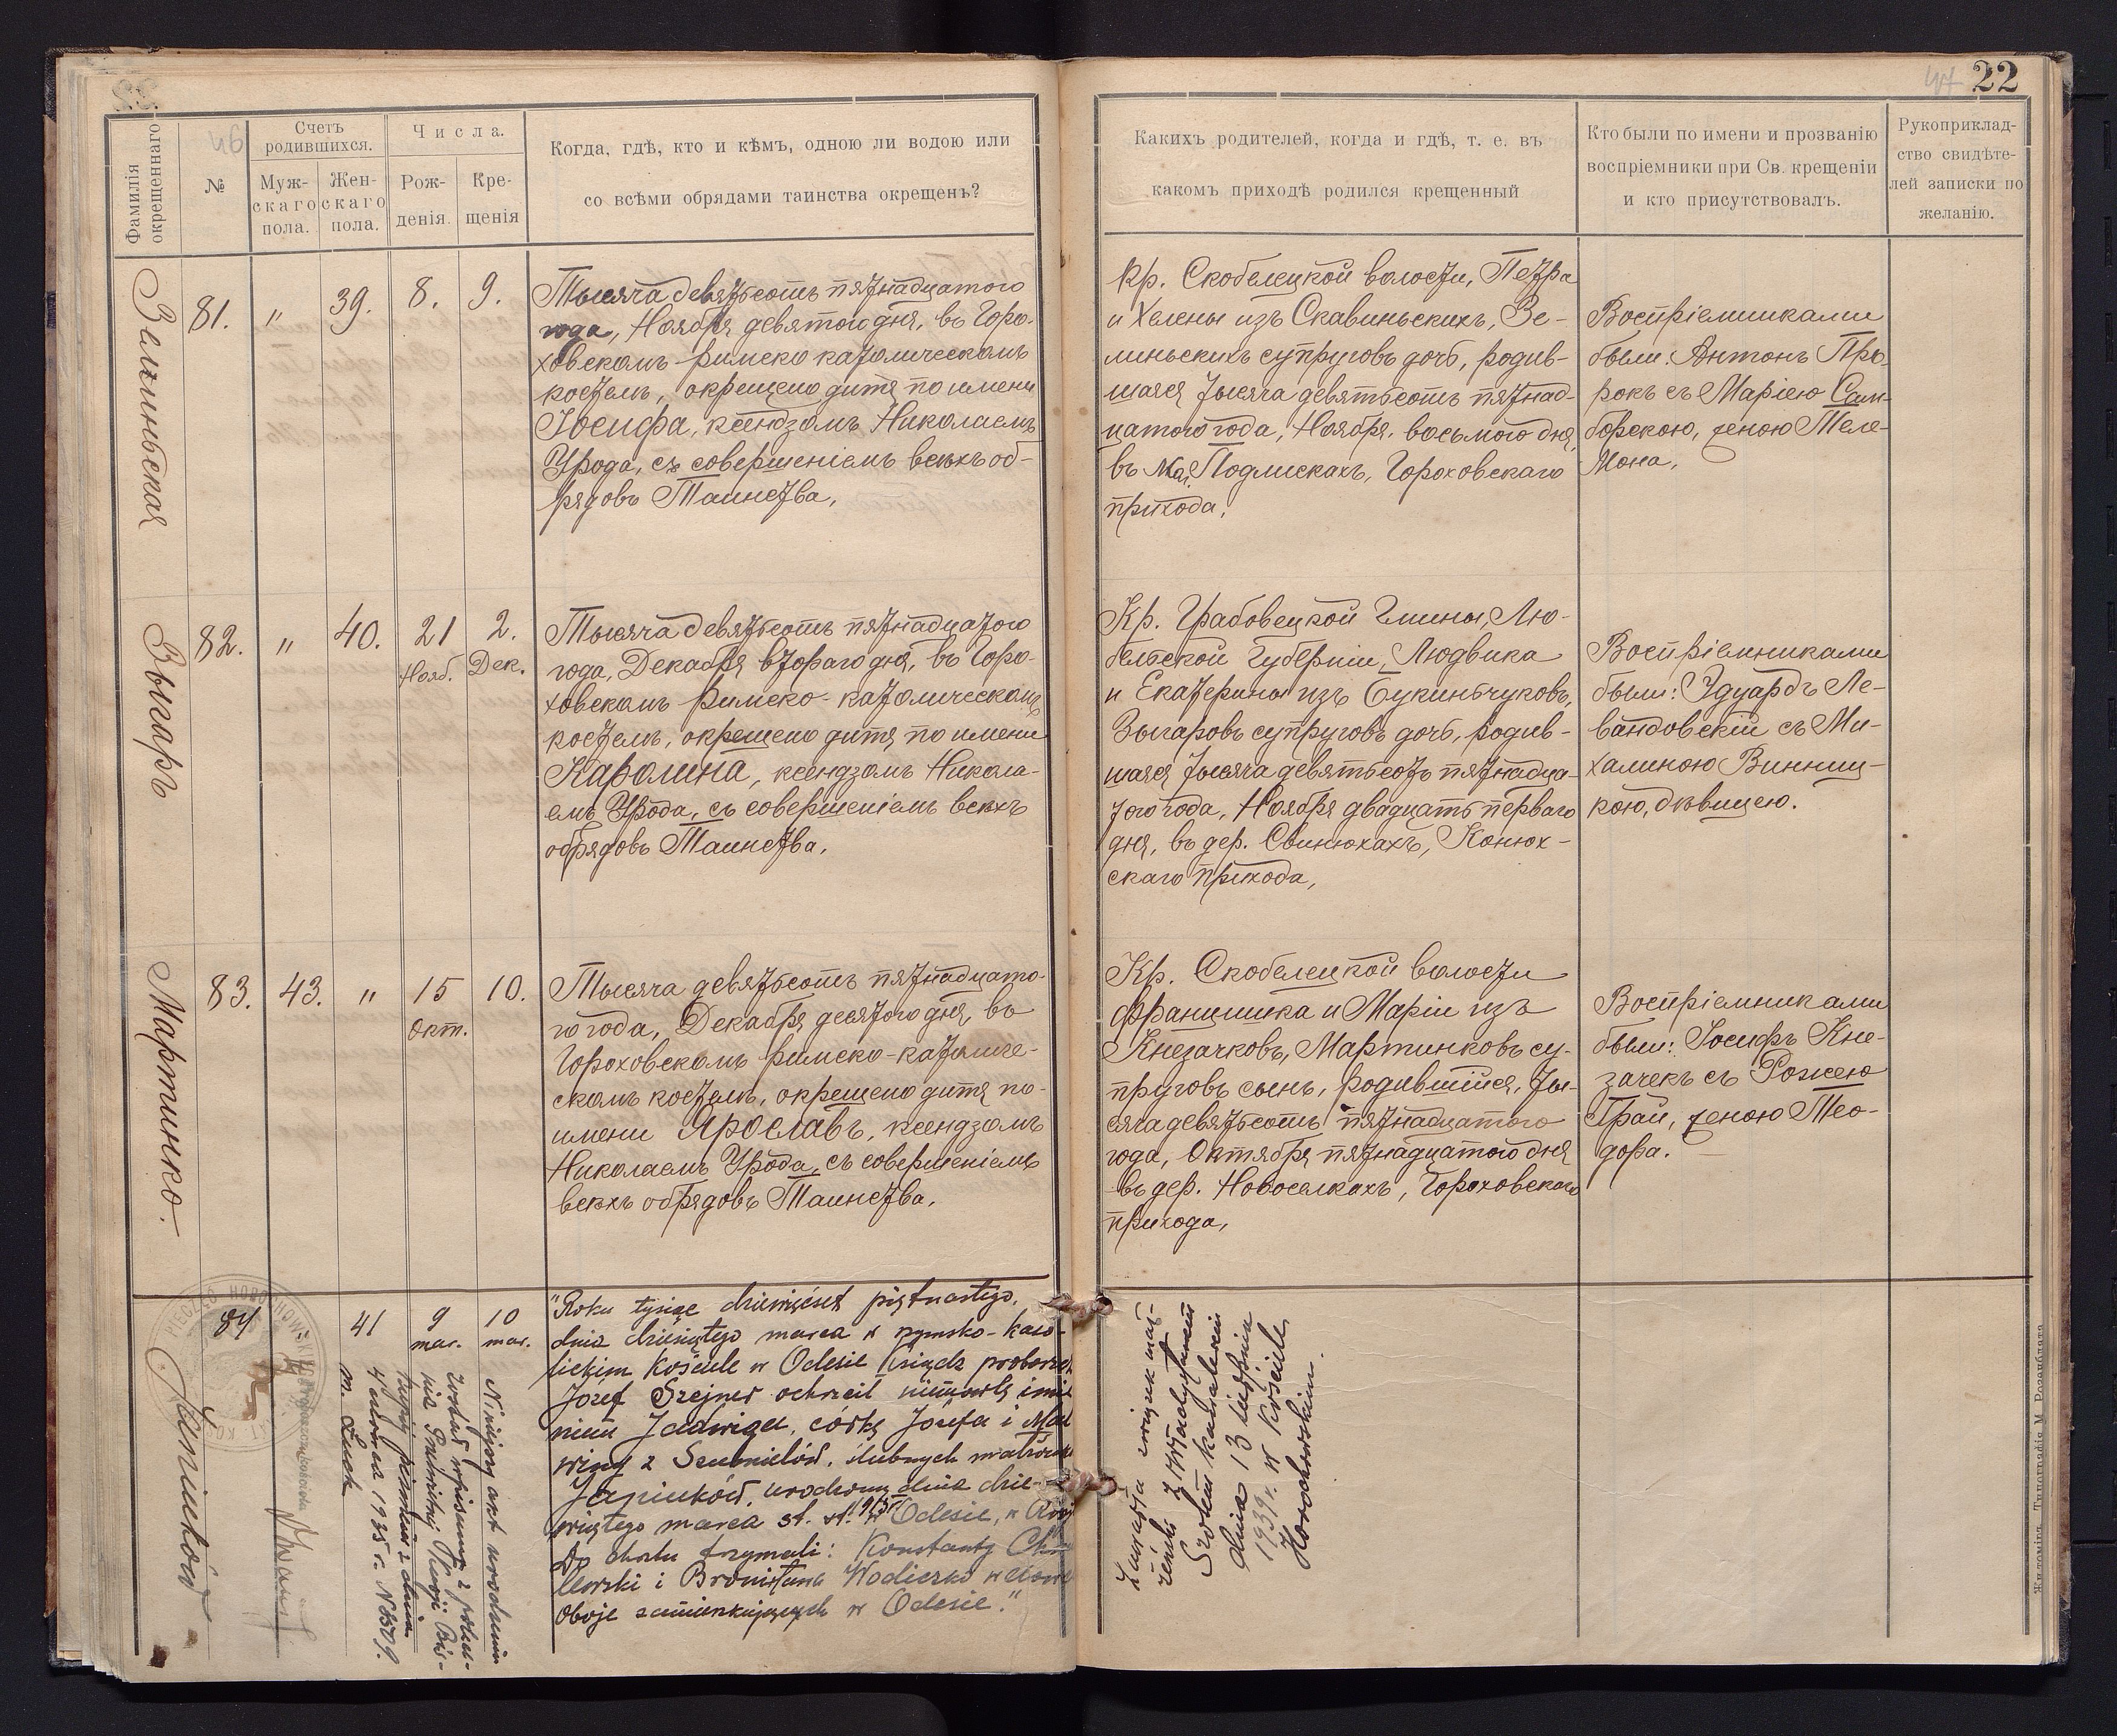 22
Фамилія
окрещеннаго
№
46
Счетъ
родившихся.
Муж-
скаго
пола.
Жен-
скаго
пола.
Числа.
Рож-
денія.
Кре-
щенія
Когда, гдѣ, кто и кѣмъ, одною ли водою или
со всѣми обрядами таинства окрещенъ?
Какихъ родителей, когда и гдѣ, т. е. въ
какомъ приходѣ родился крещенный
Кто были по имени и прозванію
воспріемники при Св. крещеніи
и кто присутствовалъ.
Рукоприклад-
ство свидѣте-
лей записки по
желанію.
Зелиньская
81.
"
39.
8.
9.
Тысяча девятьсотъ пятнадцатого
года, Ноября девятого дня, въ Горо-
ховскомъ римско католическомъ
костелѣ, окрещено дитя по имени
Іосифа, ксендзомъ Николаемъ
Урода, съ совершеніемъ всѣхъ об-
рядовъ Таинства,
Кр. Скобелецкой волости, Петра
и Хелены изъ Скавиньскихъ, Зе-
линьскихъ супруговъ дочь, родив-
шаяся тысяча девятьсотъ пятнад-
цатого года, Ноября восьмого дня
въ Подлискахъ, Гороховскаго
прихода,
Воспріемниками
были: Антонъ Про-
рокъ съ Маріею Сам-
борскою, женою Теле-
мона,
Зыгаръ
82.
"
40.
21
Нояб.
2.
Дек.
Тысяча девятьсотъ пятнадцатого
года, Декабря втораго дня, въ Горо-
ховскомъ римско-католическомъ
костелѣ, окрещено дитя по имени
Каролина, ксендзомъ Никола-
емъ Урода, съ совершеніемъ всѣхъ
обрядовъ Таинства,
Кр. Грабовецкой Гмины, Лю-
бельской Губерніи, Людвика
и Екатерины изъ Букиньчуковъ,
Зыгаровъ супруговъ дочь, родив-
шаяся тысяча девятьсотъ пятнадца-
того года, Ноября двадцать перваго
дня, въ дер. Свинюхахъ, Конюх-
скаго прихода,
Воспріемниками
были: Эдуардъ Ле-
вандовскій съ Ми-
халиною Винниц-
кою, дѣвицею.
Мартинко.
83.
43.
"
15
Окт.
10.
Тысяча девятьсотъ пятнадцато-
го года, Декабря десятого дня, въ
Гороховскомъ римско-католиче-
скомъ костелѣ, окрещено дитя по
имени Ярославъ, ксендзомъ
Николаемъ Урода, съ совершеніемъ
всѣхъ обрядовъ Таинства.
Кр. Скобелецкой волости
Францишка и Маріи изъ
Кнезачковъ, Мартинковъ су-
пруговъ сынъ, родившійся, ты-
сяча девятьсотъ пятнадцатого
года, Октября пятнадцатого дня
въ дер. Новоселкахъ, Гороховскаго
прихода,
Воспріемниками
были: Іосифъ Кне-
зачекъ съ Розею
Грай, женою Тео-
дора.
84
41
9
mar.
10
mar.
"Roku tysiąc dziewięćset piętnastego,
dnia dziesiątego marca w rzymsko-kato-
lickim Kościele w Odesie Ksiądz proboszcz
Józef Szejner ochrzcił niemowlę imie
niem Jadwiga, córkę Józefa i Mal
winy z małżonków
Janiuków, urodzoną dnia dzie-
wiątego marca st. st. 1915 r. w Odesie,
Do chrztu trzymali: Konstanty
lewski i Bronisława Wodiczko
oboje zamieszkujących w Odesie."
Niniejszy akt urodzenia
został wpisany z polece-
nia
4 1935 r. N 3579.
m. Łuck
Zawarła związek mał-
żeński z Władysławem
kawalerem
dnia 13
1939 r. w Kościele
Horochowskim.
Житоміръ. Типографія М. Розенблата